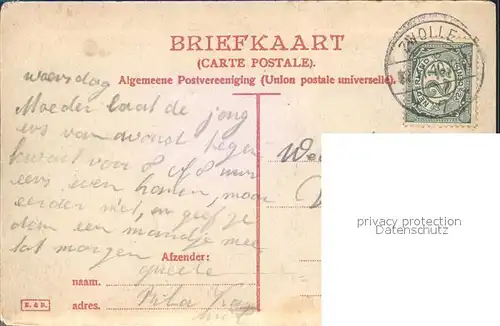 BRIEFKAART
(CARTE POSTALE).
Algemeene Postvereeniging (Union postale universelle).
ZWOLLE
NEDERLAND
2½
woensdag
Moeder laat de jong
eens van avond tegen
kwart voor 8 of 8 uur
eens even komen, maar
eerder niet, en geef je
dem een mandje mee
tot morgen
Afzender:
naam.
adres.
E. & B.
privacy protection
Datenschutz